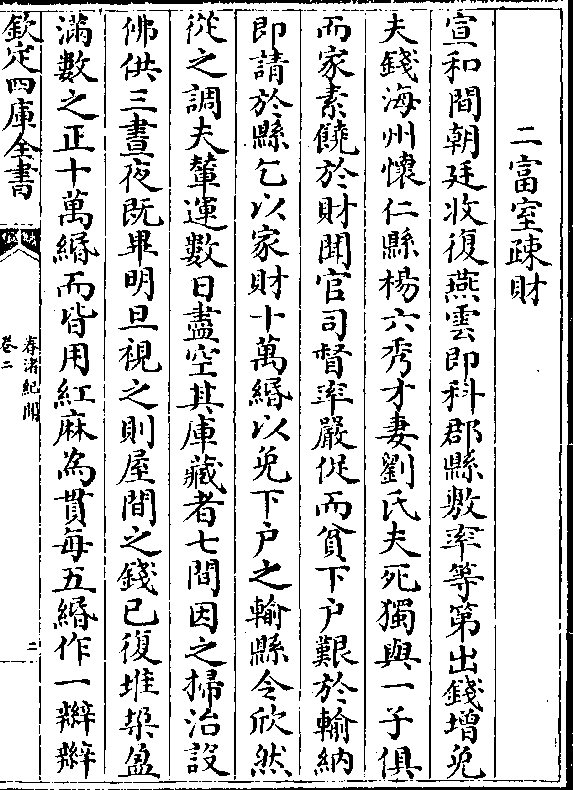 二富室疎財
宣和間朝廷收復燕雲即科郡縣敷率等第出錢增免
夫錢海州懷仁縣楊六秀才妻劉氏夫死獨與一子俱
而家素饒於財聞官司督率嚴促而貧下户艱於輸納
即請於縣乞以家財十萬緡以免下户之輸縣令欣然
從之調夫輦運數日盡空其庫藏者七間因之掃治設
佛供三晝夜既畢明旦視之則屋間之錢已復堆垜盈
滿數之正十萬緡而皆用紅麻為貫每五緡作一辮辮
欽定四庫全書
春渚紀聞
卷二